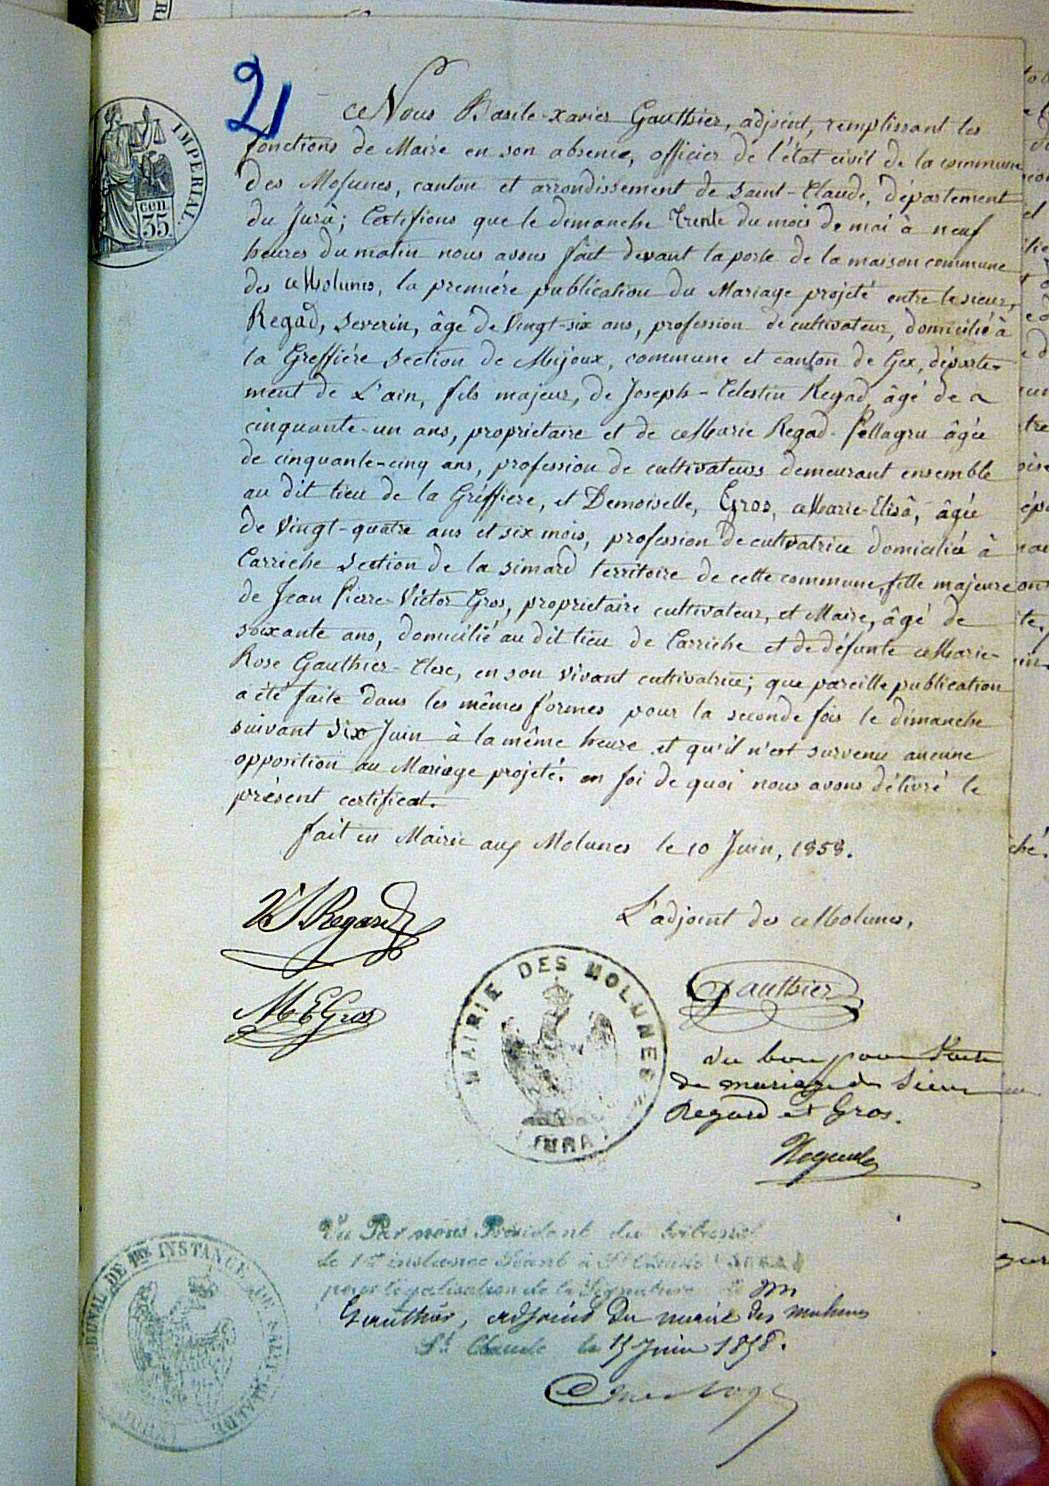 21
IMPERIAL.
cen
35
Nous Basile-Xavier Gauthier, adjoint, remplissant les
fonctions de Maire en son absence, officier de l'état civil de la commune
des Molunes, canton et arrondissement de Saint-Claude, département
du Jura; Certifions que le dimanche trente du mois de mai à neuf
heures du matin nous avons fait devant la porte de la maison commune
des Molunes, la première publication du Mariage projeté entre le sieur,
Regad, Severin, âgé de Vingt-six ans, profession de cultivateur, domicilié à
la Greffière section de Mijoux, commune et canton de Gex, départe-
ment de L'ain, fils majeur, de Joseph-Celestin Regad, âgé de
cinquante-un ans, propriétaire et de Marie Regad-Pellagru âgée
de cinquante-cinq ans, profession de cultivateurs demeurant ensemble
au dit lieu de la Gréffiere, et Demoiselle, Gros, Marie-Elisâ, âgée
de Vingt-quatre ans et six mois, profession de cultivatrice domiciliée à
Carriche section de la simard territoire de cette commune, fille majeure
de Jean Pierre-Victor Gros, propriétaire cultivateur, et Maire, âgé de
soixante ans, domicilié au dit lieu de Carriche et de défunte Marie-
Rose Gauthier-Clerc, en son vivant cultivatrice; que pareille publication
a été faite dans les mêmes formes pour la seconde fois le dimanche
suivant six Juin à la même heure et qu'il n'est survenu aucune
opposition au Mariage projeté. en foi de quoi nous avons délivré le
présent certificat.
fait en Mairie aux Molunes le 10 Juin, 1858.
L'adjoint des Molunes,
Regard
M. E Gros
Gauthier
MAIRIE DES MOLUNES
(JURA)
Vu bon pour
de mariage des Sieur
Regard et Gros.
Vu Par nous Président du tribunal
de 1re instance Séant à St Claude (JURA)
pour légalisation de la Signature de Mr
Gauthier, adjoint du maire des molunes
St Claude le 15 Juin 1858.
TRIBUNAL DE 1RE INSTANCE DE SAINT-CLAUDE
(JURA)